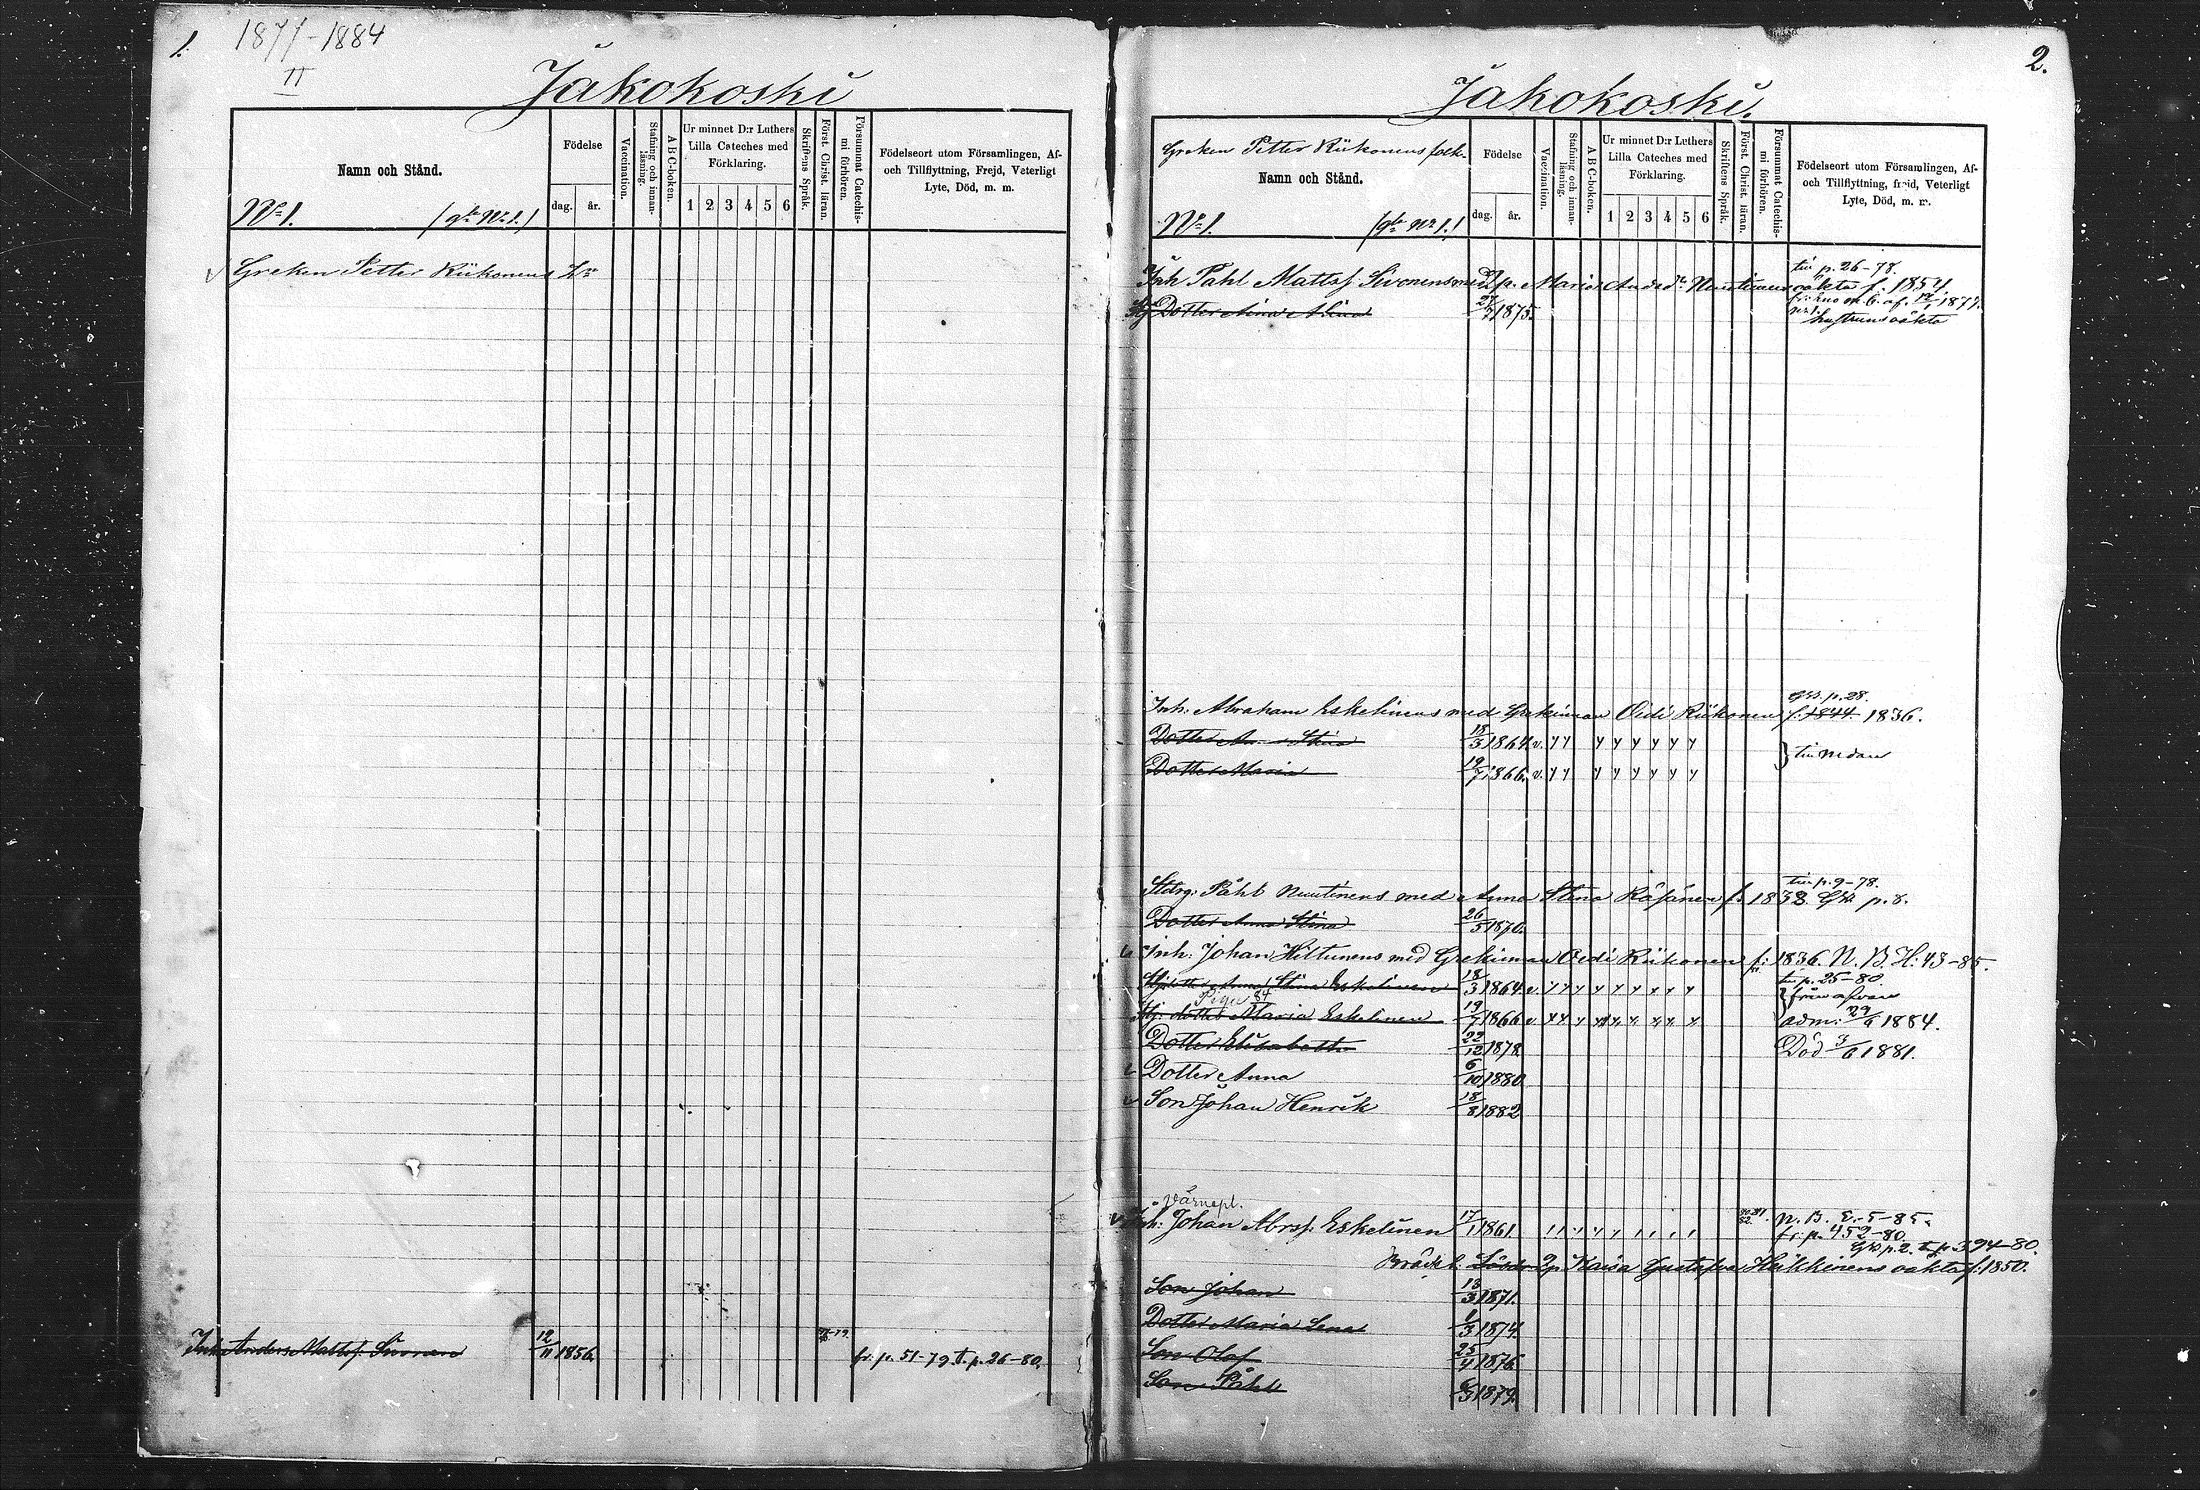 1.
1871-1884
II
Jakokoski
Namn och Stånd.
Födelse
dag.
år.
Vaccination.
Stafning och innan-
läsning.
A B C-boken.
Ur minnet D:r Luthers
Lilla Cateches med
Förklaring.
1 2 3 4 5 6
Skriftens Språk.
Först. Christ. läran.
Försummat Catechis-
mi förhören.
Födelseort utom Församlingen, Af-
och Tillflyttning, Frejd, Veterligt
Lyte, Död, m. m.
No 1.
Greken Petter Riikonens
Inh. Anders Matts. Sivonen 12/11 1856. fr. p. 51-79. t. p. 26-80.
2.
Jakokoski.
Greken Petter Riikonens folk.
Namn och Stånd.
Födelse
dag.
år.
Vaccination.
Stafning och innan-
läsning.
A B C-boken.
Ur minnet D:r Luthers
Lilla Cateches med
Förklaring.
1 2 3 4 5 6
Skriftens Språk.
Först. Christ. läran.
Försummat Catechis-
mi förhören.
Födelseort utom Församlingen, Af-
och Tillflyttning, frejd, Veterligt
Lyte, Död, m. m.
No 1.
till p. 26-78.
Inh. Påhl Matts. Sivonens med Maria Nuutinens oäkta f. 1854.
Dotter Alina 27/7 1875.
hustruns oäkta
p. 28.
Inh. Abraham Eskelinens med Grekinnan Oudi Riikonen f. 1844 1836.
Dotter Stina 18/3 1864. v.
till nedan
Dotter Maria 19/7 1866. v.
till p. 9-78.
Påhl Nuutinens med Anna Stina Räsänen f. 1838. p. 8.
Dotter Anna Stina 26/5 1870.
Inh. Johan Hiltunens med Grekinnan Oudi Riikonen f. 1836. N. B. H. 43-85.
till p. 25-80.
Anna Stina Eskelinen 18/3 1864. v. från ofvan
Piga 84
dotter Maria Eskelinen 19/7 1866 v. adm. 1884.
Dotter Elisabeth 22/12 1878. Död 3/6 1881.
Dotter Anna 6/10 1880.
Son Johan Henrik 18/8 1882
Värnepl.
Inh. Johan Abrs. Eskelinen 17/1 1861. N. B. E. 5-85.
fr. p. 452-80.
p. 2. t. p. 394-80.
Kaisa Gustafva Häkkinens oäkta f. 1850.
Son Johan 13/3 1871.
Dotter Maria Lena 1/3 1874.
Son Olof 25/4 1876
Son Påhl 6/3 1879.